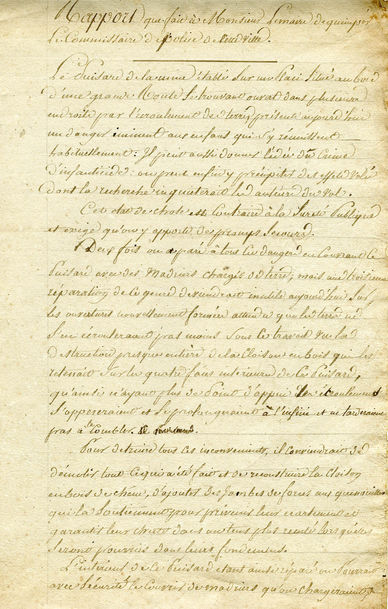 Rapport que fait à Monsieur Lemaire de quimper
Le Commissaire de Police de cette ville.
Le Puisard de la mine établi sur un Placi situé au bord
d'une grande Route se trouvant ouvert dans plusieurs
endroits par l'écroulement des terres, présente aujourd'hui
un danger iminent aux enfans qui s'y réunissent
habituellement: Il peut aussi donner l'idée du Crime
d'infanticide: on peut enfin y précipiter des effets volés
dont la recherche inquieterait les auteurs du vol.
Cet état de chose est Contraire à la Sureté Publique
et exige qu'on y apporte de promps Secours.
Deux fois on a paré à tous les dangers en Couvrant le
Puisard avec des Madriers chargés de terre; mais une troisieme
réparation de ce genre deviendrait inutile aujourd'hui sur
les ouvertures nouvellement formées attendu que les terres ne
s'en écrouleraient pas moins sous le travail vu la
destruction presque entière de la Cloison en bois qui les
retenait sur les quatre faces intérieures de ce Puisard,
qu'ainsi n'ayant plus de Point d'appui les éboulemens
s'opèreraient et se prolongeraient à l'infini et ne tarderaient
pas à combler
Pour obvier à tous ces inconveniens, il conviendrait de
démolir tout ce qui a été fait et de reconstruire la Cloison
en bois de chêne, d'ajouter des Jambes de forces aux
qui la soutiennent pour prévenir leur écartement et
garantir leur chute dans un tems plus reculé lorsqu'elles
seront pourries dans leurs fondemens.
L'intérieur de ce Puisard étant ainsi réparé on pourrait
avec sécurité le Couvrir de madriers qu'on chargerait